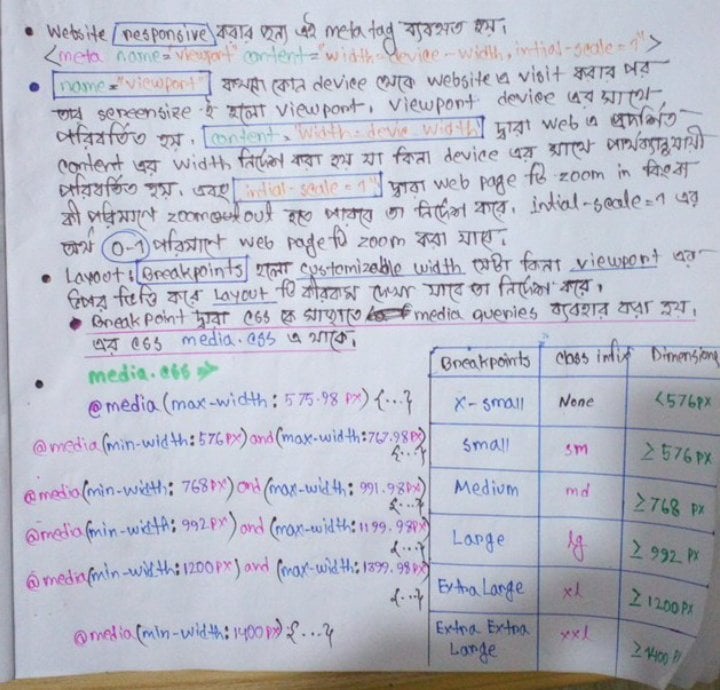 • Website responsive করার জন্য এই meta tag ব্যবহৃত হয়।
<meta name="viewport" content="width=device-width, intial-scale=1">
• name="viewport" কোন device থেকে website এ visit করার পর
তার screensize ই হলো viewport. viewport device এর সাথে
পরিবর্তিত হয়. content="width=devie-width" দ্বারা web এ প্রদর্শিত
content এর width নির্দেশ করা হয় যা কিনা device এর সাথে
পরিবর্তিত হয়. এবং intial-scale=1" দ্বারা web page টি zoom in কিংবা
কী পরিমাণে zoom out হতে পারবে তা নির্দেশ করে. intial-scale=1 এর
অর্থ 0-1 পরিমাণে web page টি zoom করা যাবে.
• Layout: Breakpoints হলো customizable width যেটা কিনা viewpont এর
উপর ভিত্তি করে Layout টি কীরকম দেখা যাবে তা নির্দেশ করে.
• Breakpoint দ্বারা css কে সাজাতে media queries ব্যবহার করা হয়.
এর css media.css এ থাকে.
• media.css ⇒
@media (max-width: 575.98 px) {...}
@media (min-width: 576px) and (max-width: 767.98px)
{...}
@media (min-width: 768px) and (max-width: 991.98px)
{...}
@media (min-width: 992px) and (max-width: 1199.98px)
{...}
@media (min-width: 1200px) and (max-width: 1399.98px)
{...}
@media (min-width: 1400px) {...}
Breakpoints class infix Dimensions
X-small None <576px
small sm ≥576px
Medium md ≥768 px
Large lg ≥992 px
Extra Large xl ≥1200px
Extra Extra
Large xxl ≥1400 p